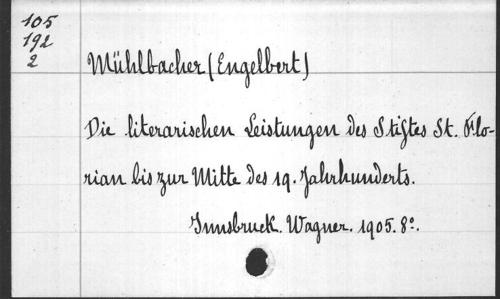 105
192
2
Mühlbacher (Engelbert)
Die literarischen Leistungen des Stiftes St. Flo-
rian bis zur Mitte des 19. Jahrhunderts.
Innsbruck. Wagner. 1905. 8°.